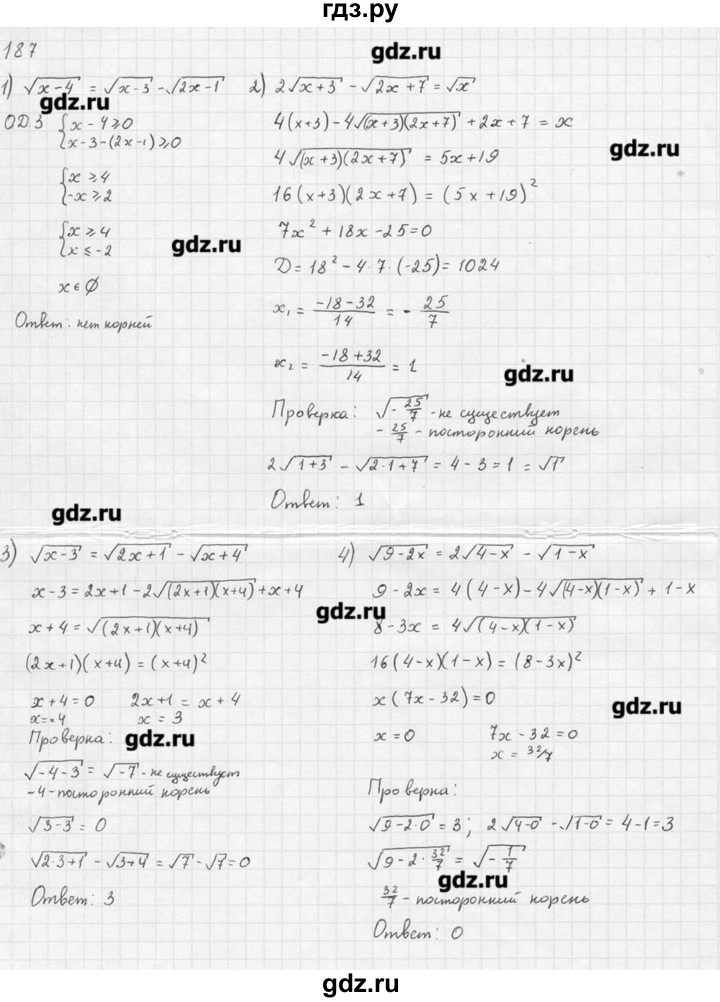 гдз.ру
187
gdz.ru
1) √(x-4) = √(x-3) - √(2x-1)
gdz.ru
ОДЗ {x-4⩾0
{x-3-(2x-1)⩾0
{x⩾4
{-x⩾2
{x⩾4
{x⩽-2
gdz.ru
x∈∅
Ответ: нет корней
2) 2√(x+3) - √(2x+7) = √x
4(x+3)-4√((x+3)(2x+7))+2x+7=x
gdz.ru
4√((x+3)(2x+7)) = 5x+19
16(x+3)(2x+7) = (5x+19)²
7x²+18x-25=0
D=18²-4·7·(-25)=1024
x₁ = (-18-32)/14 = - 25/7
x₂ = (-18+32)/14 = 1
gdz.ru
Проверка: √(-25/7) - не существует
-25/7 - посторонний корень
2√(1+3) - √(2·1+7) = 4-3=1=√1
Ответ: 1
gdz.ru
3) √(x-3) = √(2x+1) - √(x+4)
x-3=2x+1-2√((2x+1)(x+4))+x+4
x+4=√((2x+1)(x+4))
(2x+1)(x+4)=(x+4)²
x+4=0 2x+1=x+4
x=-4 x=3
Проверка:
gdz.ru
√(-4-3) = √(-7) - не существует
-4-посторонний корень
√(3-3) = 0
√(2·3+1) - √(3+4) = √7 - √7 = 0
Ответ: 3
4) √(9-2x) = 2√(4-x) - √(1-x)
9-2x = 4(4-x)-4√((4-x)(1-x)) + 1-x
gdz.ru
8-3x = 4√((4-x)(1-x))
16(4-x)(1-x)=(8-3x)²
x(7x-32)=0
gdz.ru
x=0 7x-32=0
x=32/7
Проверка:
√(9-2·0) = 3; 2√(4-0) - √(1-0) = 4-1=3
√(9-2·32/7) = √(-1/7)
gdz.ru
32/7 - посторонний корень
Ответ: 0
гдз.ру